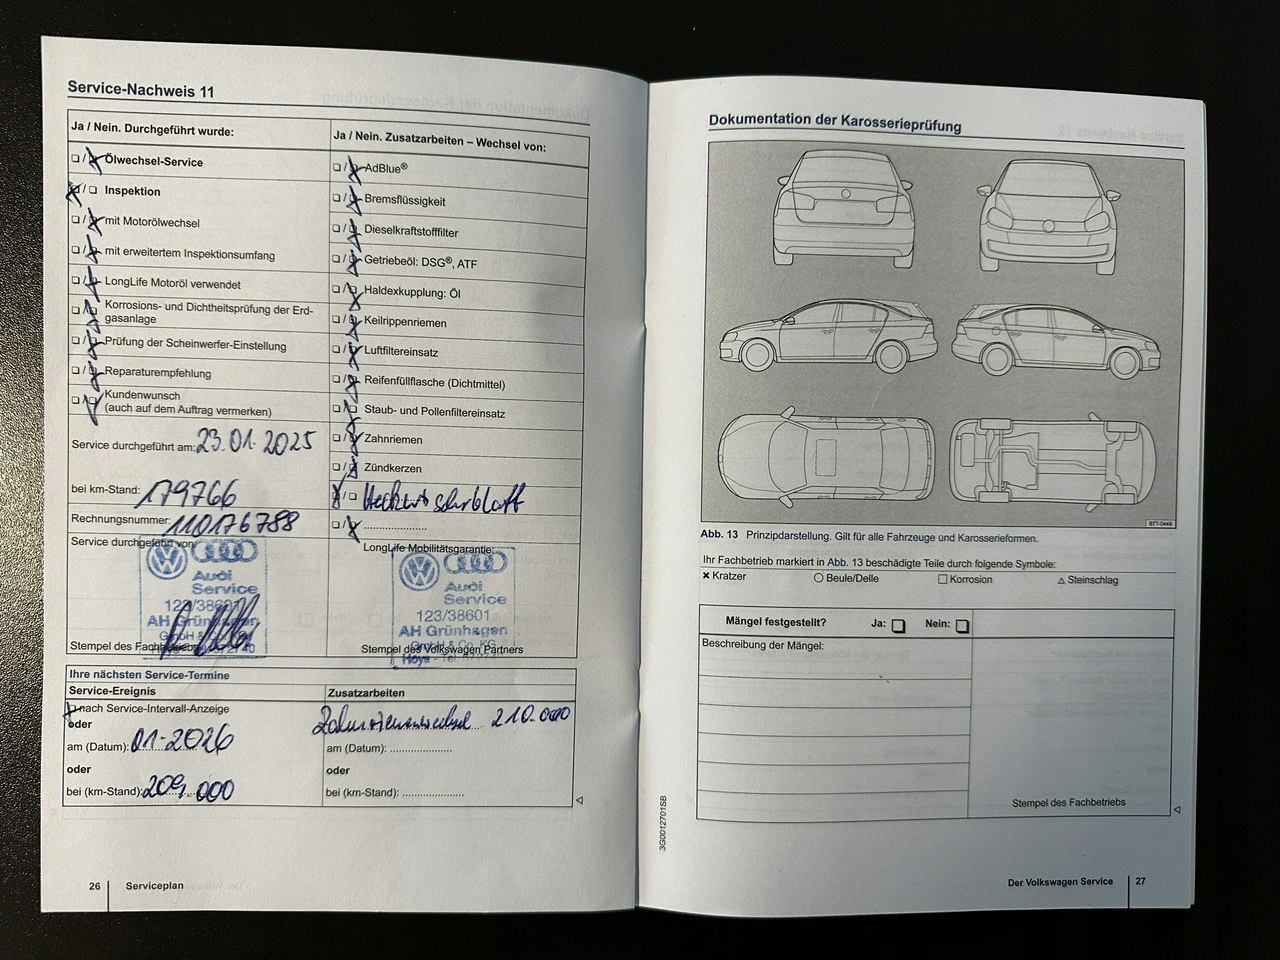 Service-Nachweis 11
Ja / Nein. Durchgeführt wurde:
Ölwechsel-Service
Inspektion
mit Motorölwechsel
mit erweitertem Inspektionsumfang
LongLife Motoröl verwendet
Korrosions- und Dichtheitsprüfung der Erd-
gasanlage
Prüfung der Scheinwerfer-Einstellung
Reparaturempfehlung
Kundenwunsch
(auch auf dem Auftrag vermerken)
Service durchgeführt am: 23.01.2025
bei km-Stand: 179766
Rechnungsnummer: 110176788
Service durchgeführt von:
Audi
Service
123/38601
AH Grünhagen
GmbH & Co. KG
Stempel des Fachbetriebs
Ja / Nein. Zusatzarbeiten – Wechsel von:
AdBlue®
Bremsflüssigkeit
Dieselkraftstofffilter
Getriebeöl: DSG®, ATF
Haldexkupplung: Öl
Keilrippenriemen
Luftfiltereinsatz
Reifenfüllflasche (Dichtmittel)
Staub- und Pollenfiltereinsatz
Zahnriemen
Zündkerzen
LongLife Mobilitätsgarantie:
Audi
Service
123/38601
AH Grünhagen
GmbH & Co. KG
Hoya - Tel.
Stempel des Volkswagen Partners
Ihre nächsten Service-Termine
Service-Ereignis
nach Service-Intervall-Anzeige
oder
am (Datum): 01-2026
oder
bei (km-Stand): 209.000
Zusatzarbeiten
Zahnriemenwechsel 210.000
am (Datum): ....................
oder
bei (km-Stand): ....................
26 Serviceplan
Dokumentation der Karosserieprüfung
BTT-0449
Abb. 13 Prinzipdarstellung. Gilt für alle Fahrzeuge und Karosserieformen.
Ihr Fachbetrieb markiert in Abb. 13 beschädigte Teile durch folgende Symbole:
Kratzer Beule/Delle Korrosion Steinschlag
Mängel festgestellt? Ja: Nein:
Beschreibung der Mängel:
Stempel des Fachbetriebs
3G0012701SB
Der Volkswagen Service 27